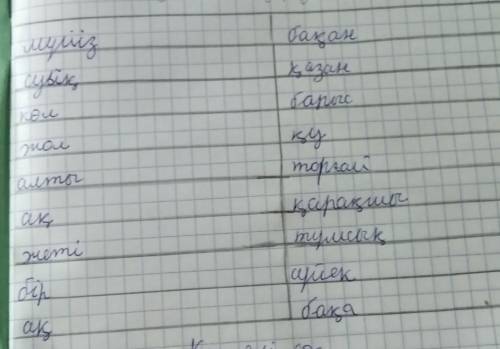 мүйіз бақан
сүйік қазан
көл барыс
жол құ
алты торғай
ақ қарақшы
жеті тұмсық
бір әйек
ақ бақа